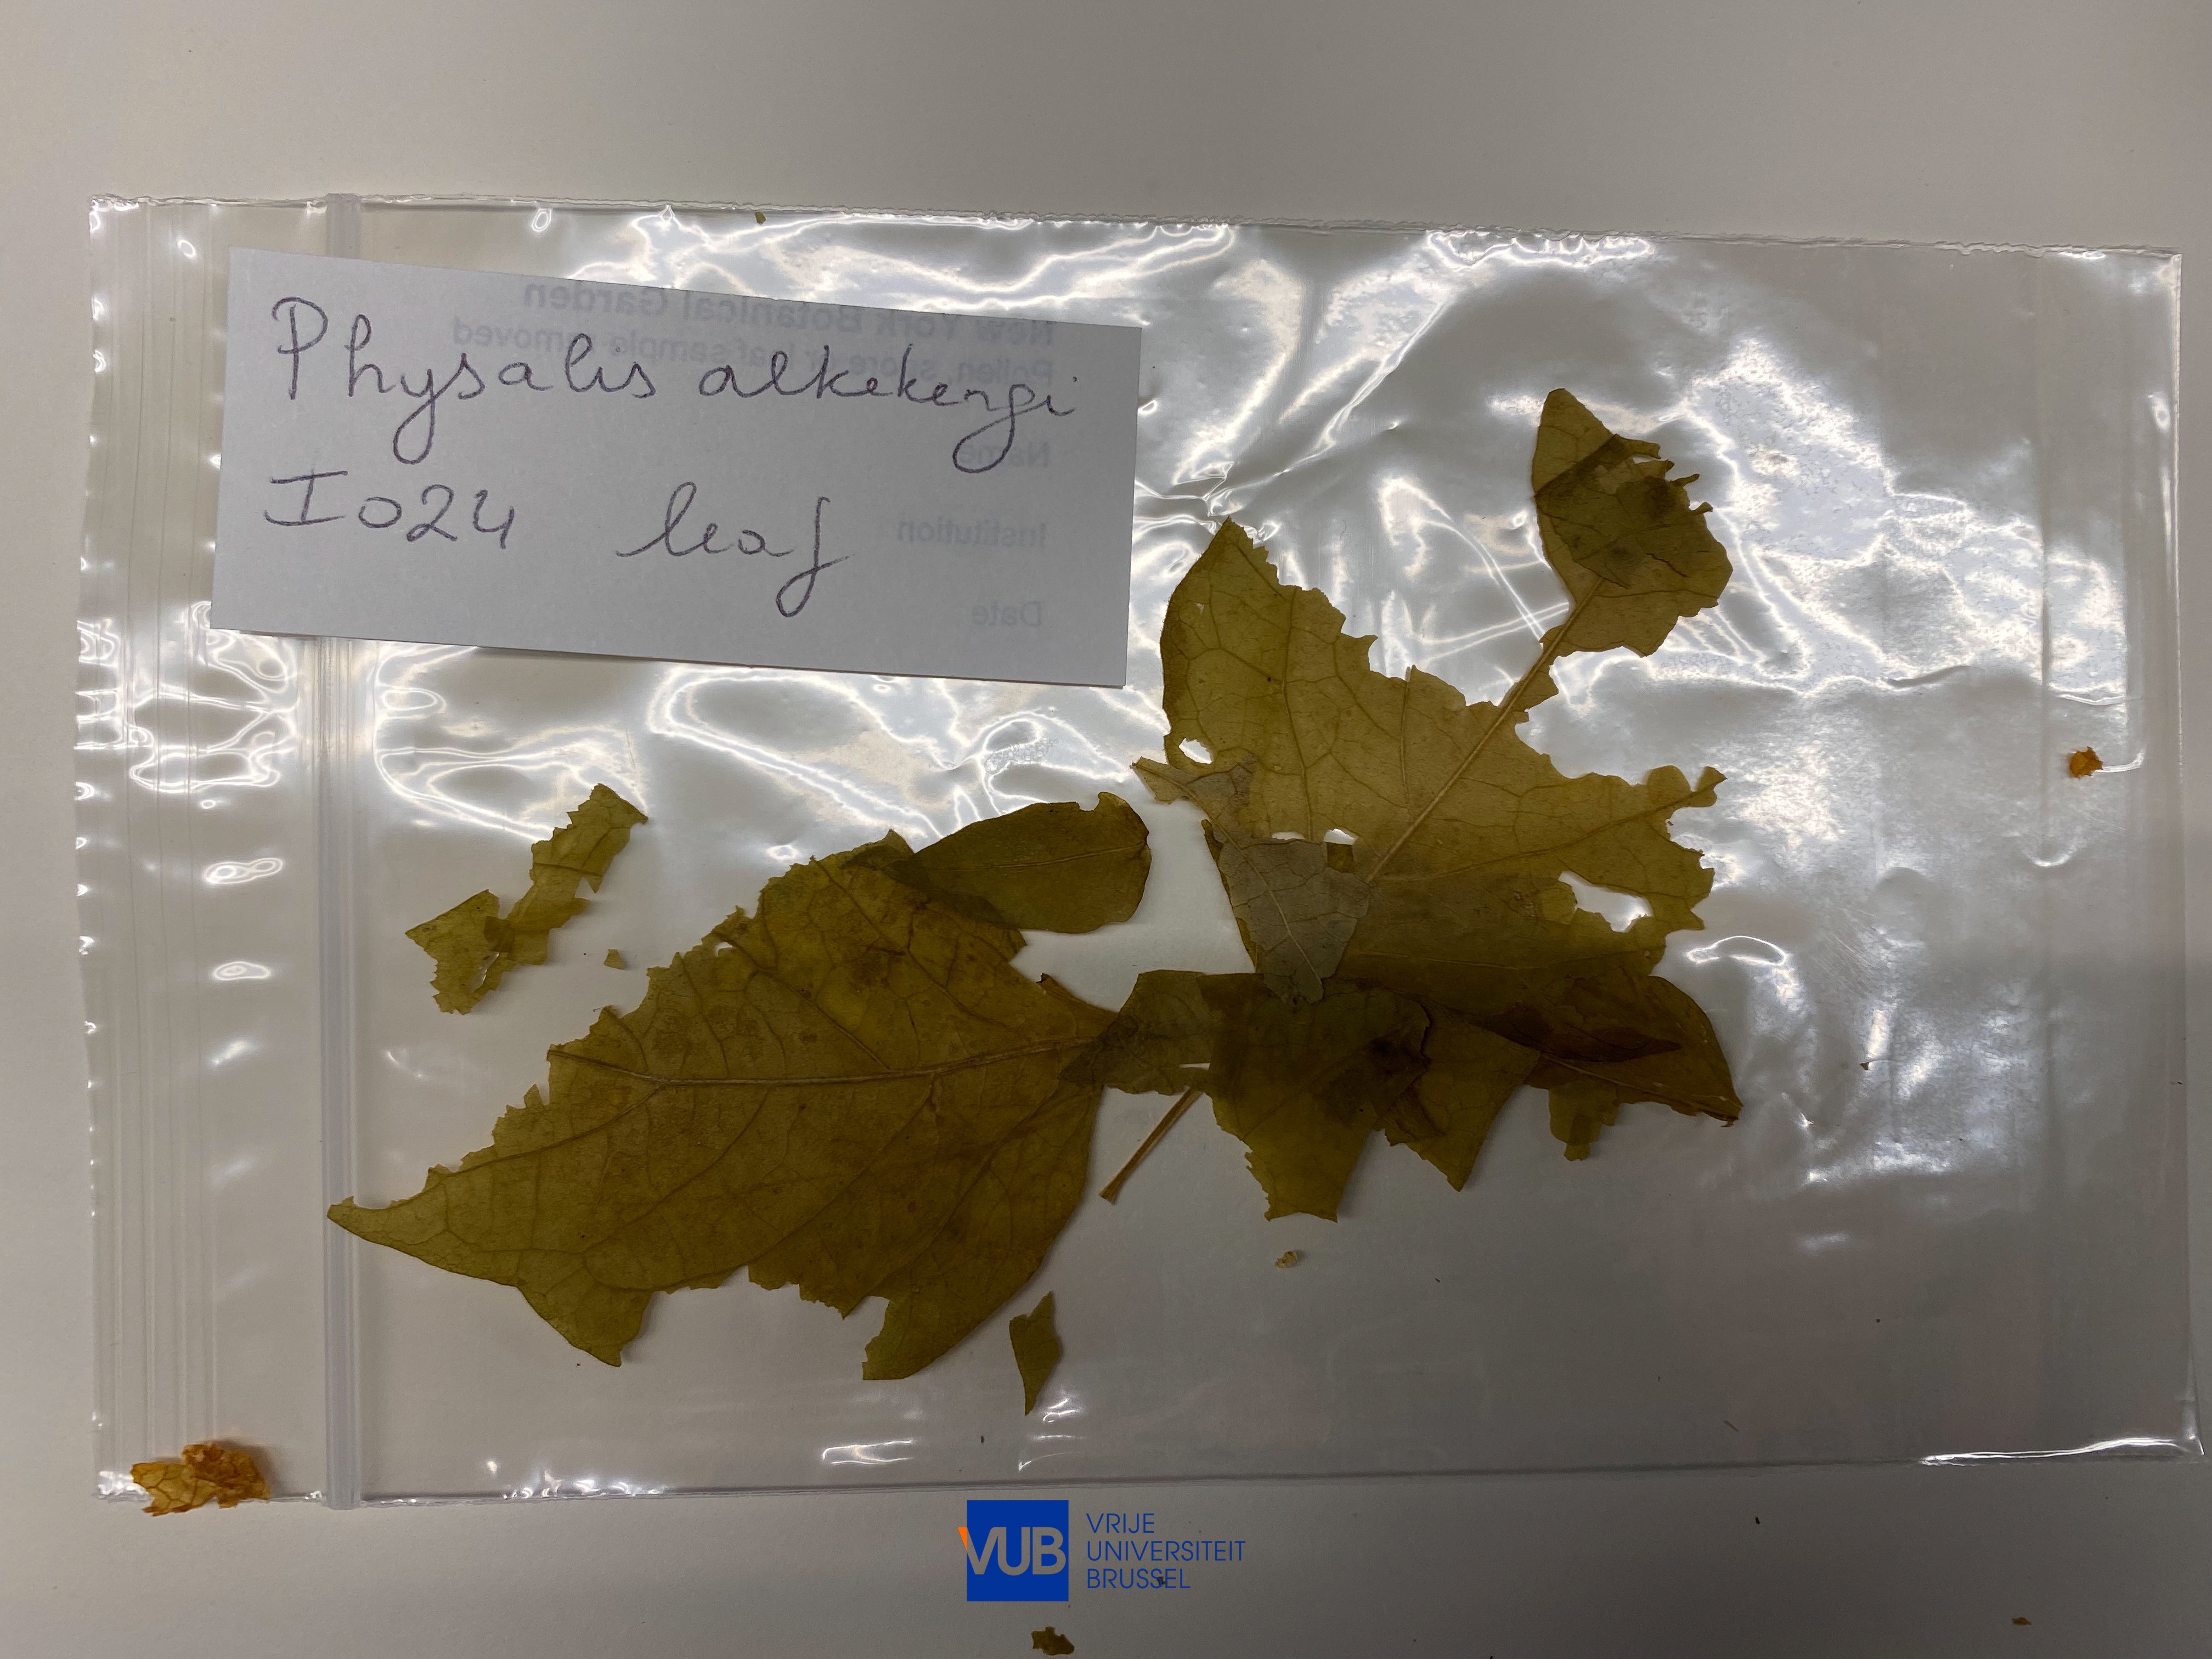 Physalis alkekengi
I024 leaf
New York Botanical Garden
Pollen, spore or leaf sample removed
Name
Institution
Date
VUB
VRIJE
UNIVERSITEIT
BRUSSEL